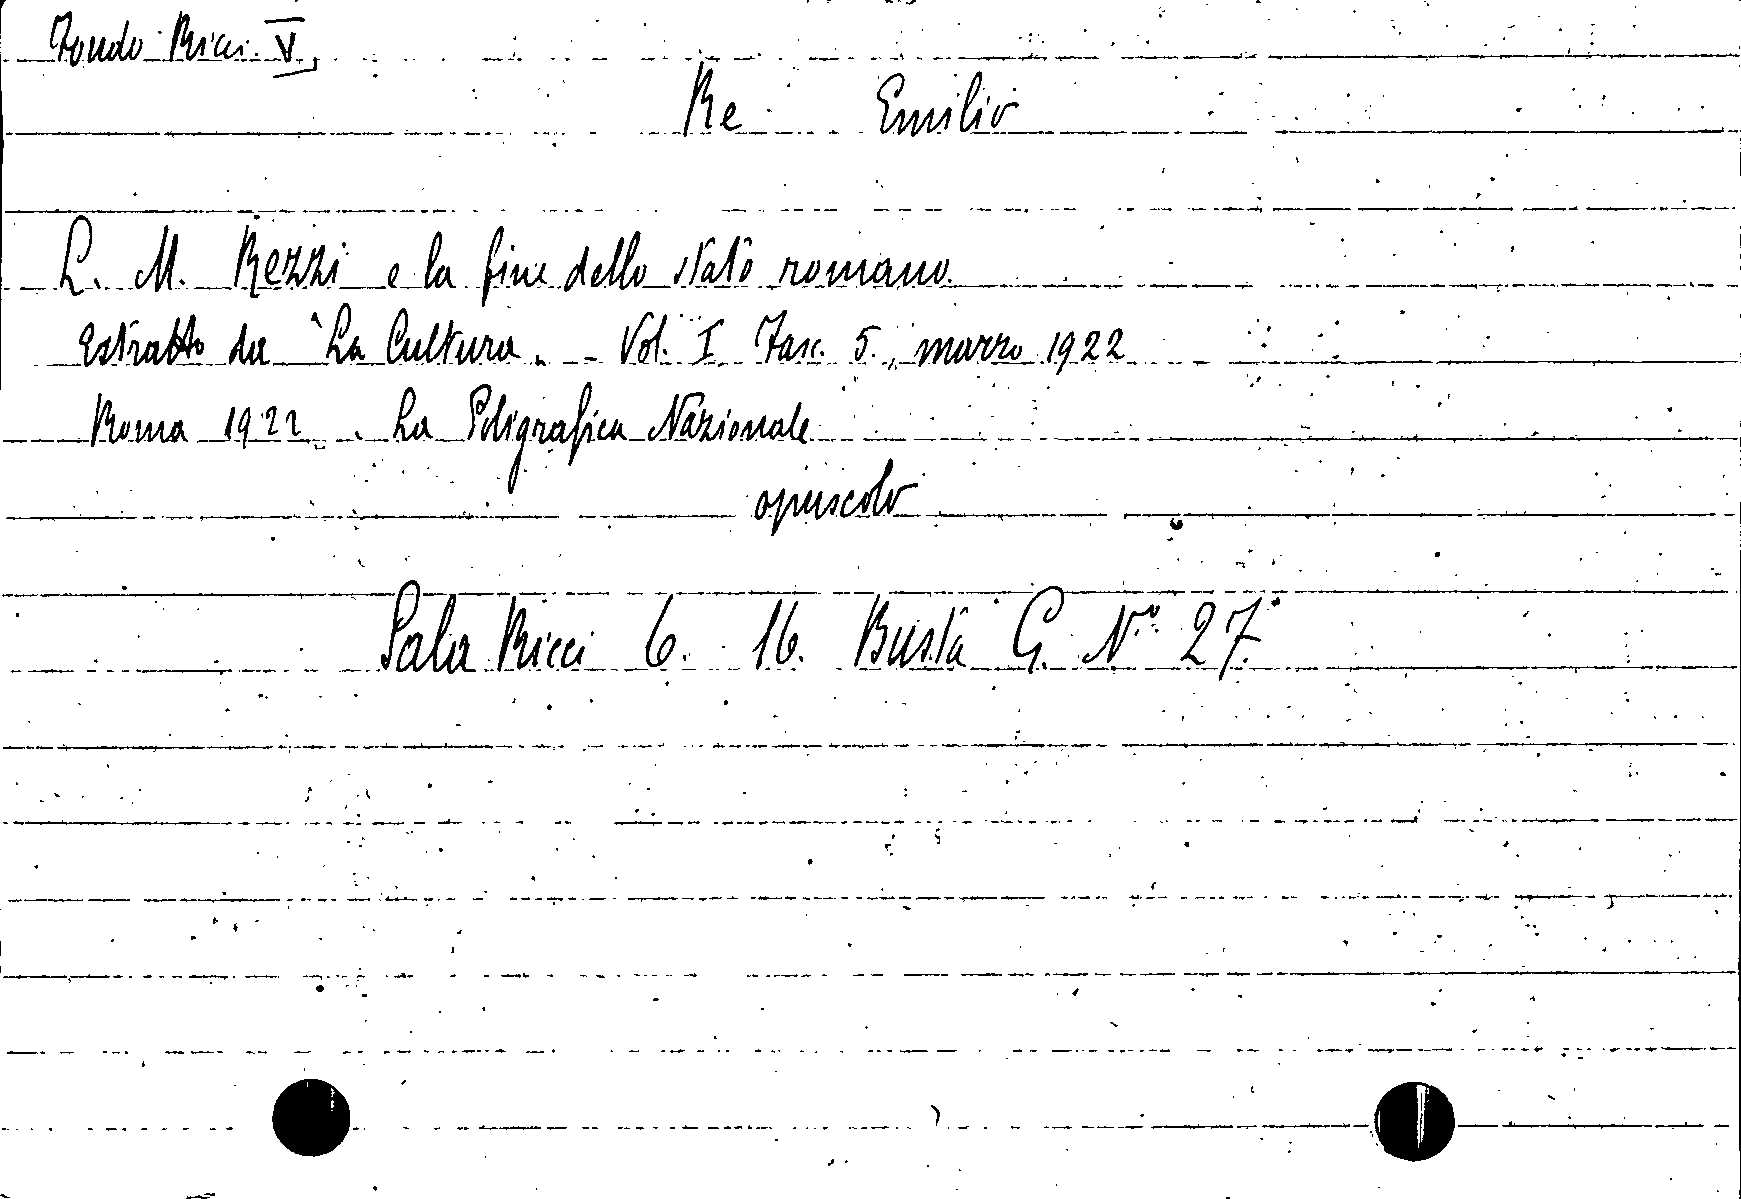 Fondo Ricci V
Re Emilio
L. M. Rezzi e la fine dello stato romano.
Estratto da "La Cultura" - Vol. I Fasc. 5., marzo 1922
Roma 1922. La Poligrafica Nazionale
opuscolo
Sala Ricci 6. 16. Busta G. N° 27.